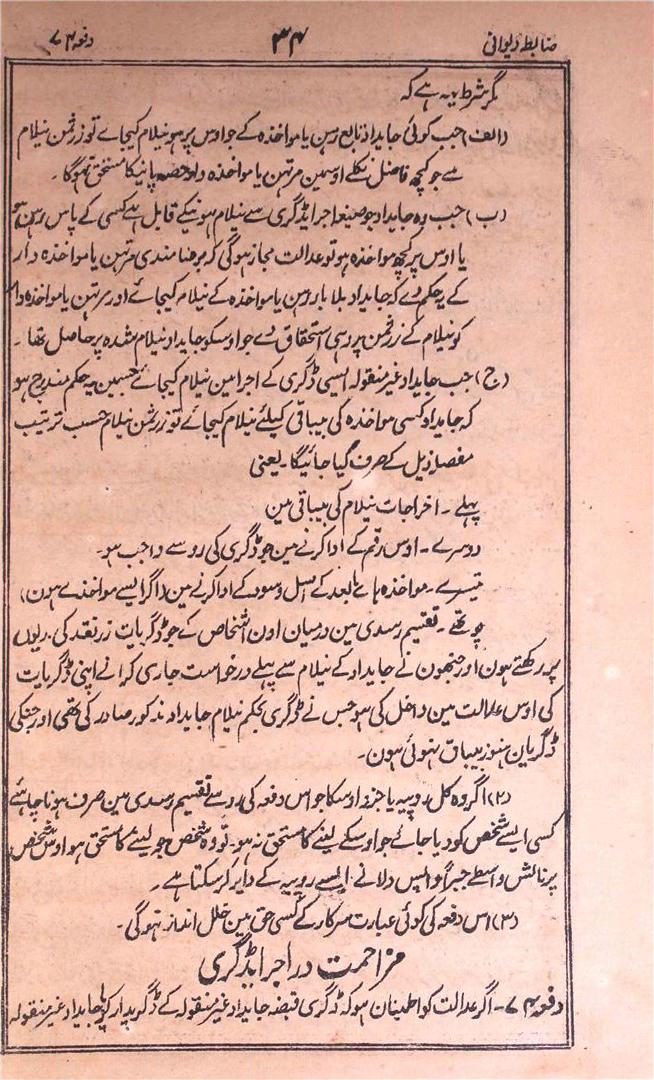 ضابطہ دیوانی ۳۴ دفعہ ۷۴
مگر شرط یہ ہے کہ
(الف) جب کوئی جایداد تابع رہن یا مواخذہ کے جو اوس پر ہو نیلام کیجائے تو زر ثمن نیلام
سے جو کچھ فاضل نکلے اوسمین مرتہن یا مواخذہ دار حصہ پانیکا مستحق نہوگا۔
(ب) جب وہ جایداد جو صیغہ اجراے ڈگری سے نیلام ہونیکے قابل ہے کسی کے پاس رہن ہو
یا اوس پر کچھ مواخذہ ہو تو عدالت مجاز ہوگی کہ برضامندی مرتہن یا مواخذہ دار
کے یہ حکم دے کہ جایداد بلا بار رہن یا مواخذہ کے نیلام کیجائے اور مرتہن یا مواخذہ دار
کو نیلام کے زر ثمن پر وہی استحقاق دے جو اوسکو جایداد نیلام شدہ پر حاصل تھا۔
(ج) جب جایداد غیر منقولہ ایسی ڈگری کے اجرا مین نیلام کیجائے جسمین یہ حکم مندرج ہو
کہ جایداد کسی مواخذہ کی بیباقی کیلئے نیلام کیجائے تو زر ثمن نیلام حسب ترتیب
مفصلہ ذیل کے صرف کیا جائیگا۔ یعنی
پہلے۔ اخراجات نیلام کی بیباقی مین
دوسرے۔ اوس رقم کے ادا کرنے مین جو ڈگری کی رو سے واجب ہو۔
تیسرے۔ مواخذہ ہاے مابعد کے اصل و سود کے ادا کرنے مین (اگر ایسے مواخذے ہون)
چوتھے۔ تقسیم رسدی مین درمیان اون اشخاص کے جو ڈگریات زر نقد کی مدیون
پر رکھتے ہون اور جنھون نے جایداد کے نیلام سے پہلے درخواست جاری کرانے اپنی ڈگریات
کی اوس عدالت مین داخل کی ہو جس نے ڈگری بحکم نیلام جایداد مذکور صادر کی تھی اور جنکی
ڈگریان ہنوز بیباق نہوئی ہون۔
(۲) اگر وہ کل روپیہ یا جزو اوسکا جو اس دفعہ کی رو سے تقسیم رسدی مین صرف ہونا چاہئے
کسی ایسے شخص کو دیا جائے جو اوسکے لینے کا مستحق نہ ہو۔ تو وہ شخص جو لینے کا مستحق ہو اوس شخص
پر نالش واسطے جبراً واپس دلانے ایسے روپیہ کے دایر کر سکتا ہے۔
(۳) اس دفعہ کی کوئی عبارت سرکار کے کسی حق مین خلل انداز نہوگی۔
مزاحمت در اجراے ڈگری
دفعہ ۷۴۔ اگر عدالت کو اطمینان ہو کہ ڈگری قبضہ جایداد غیر منقولہ کے ڈگریدار کو یا جایداد غیر منقولہ